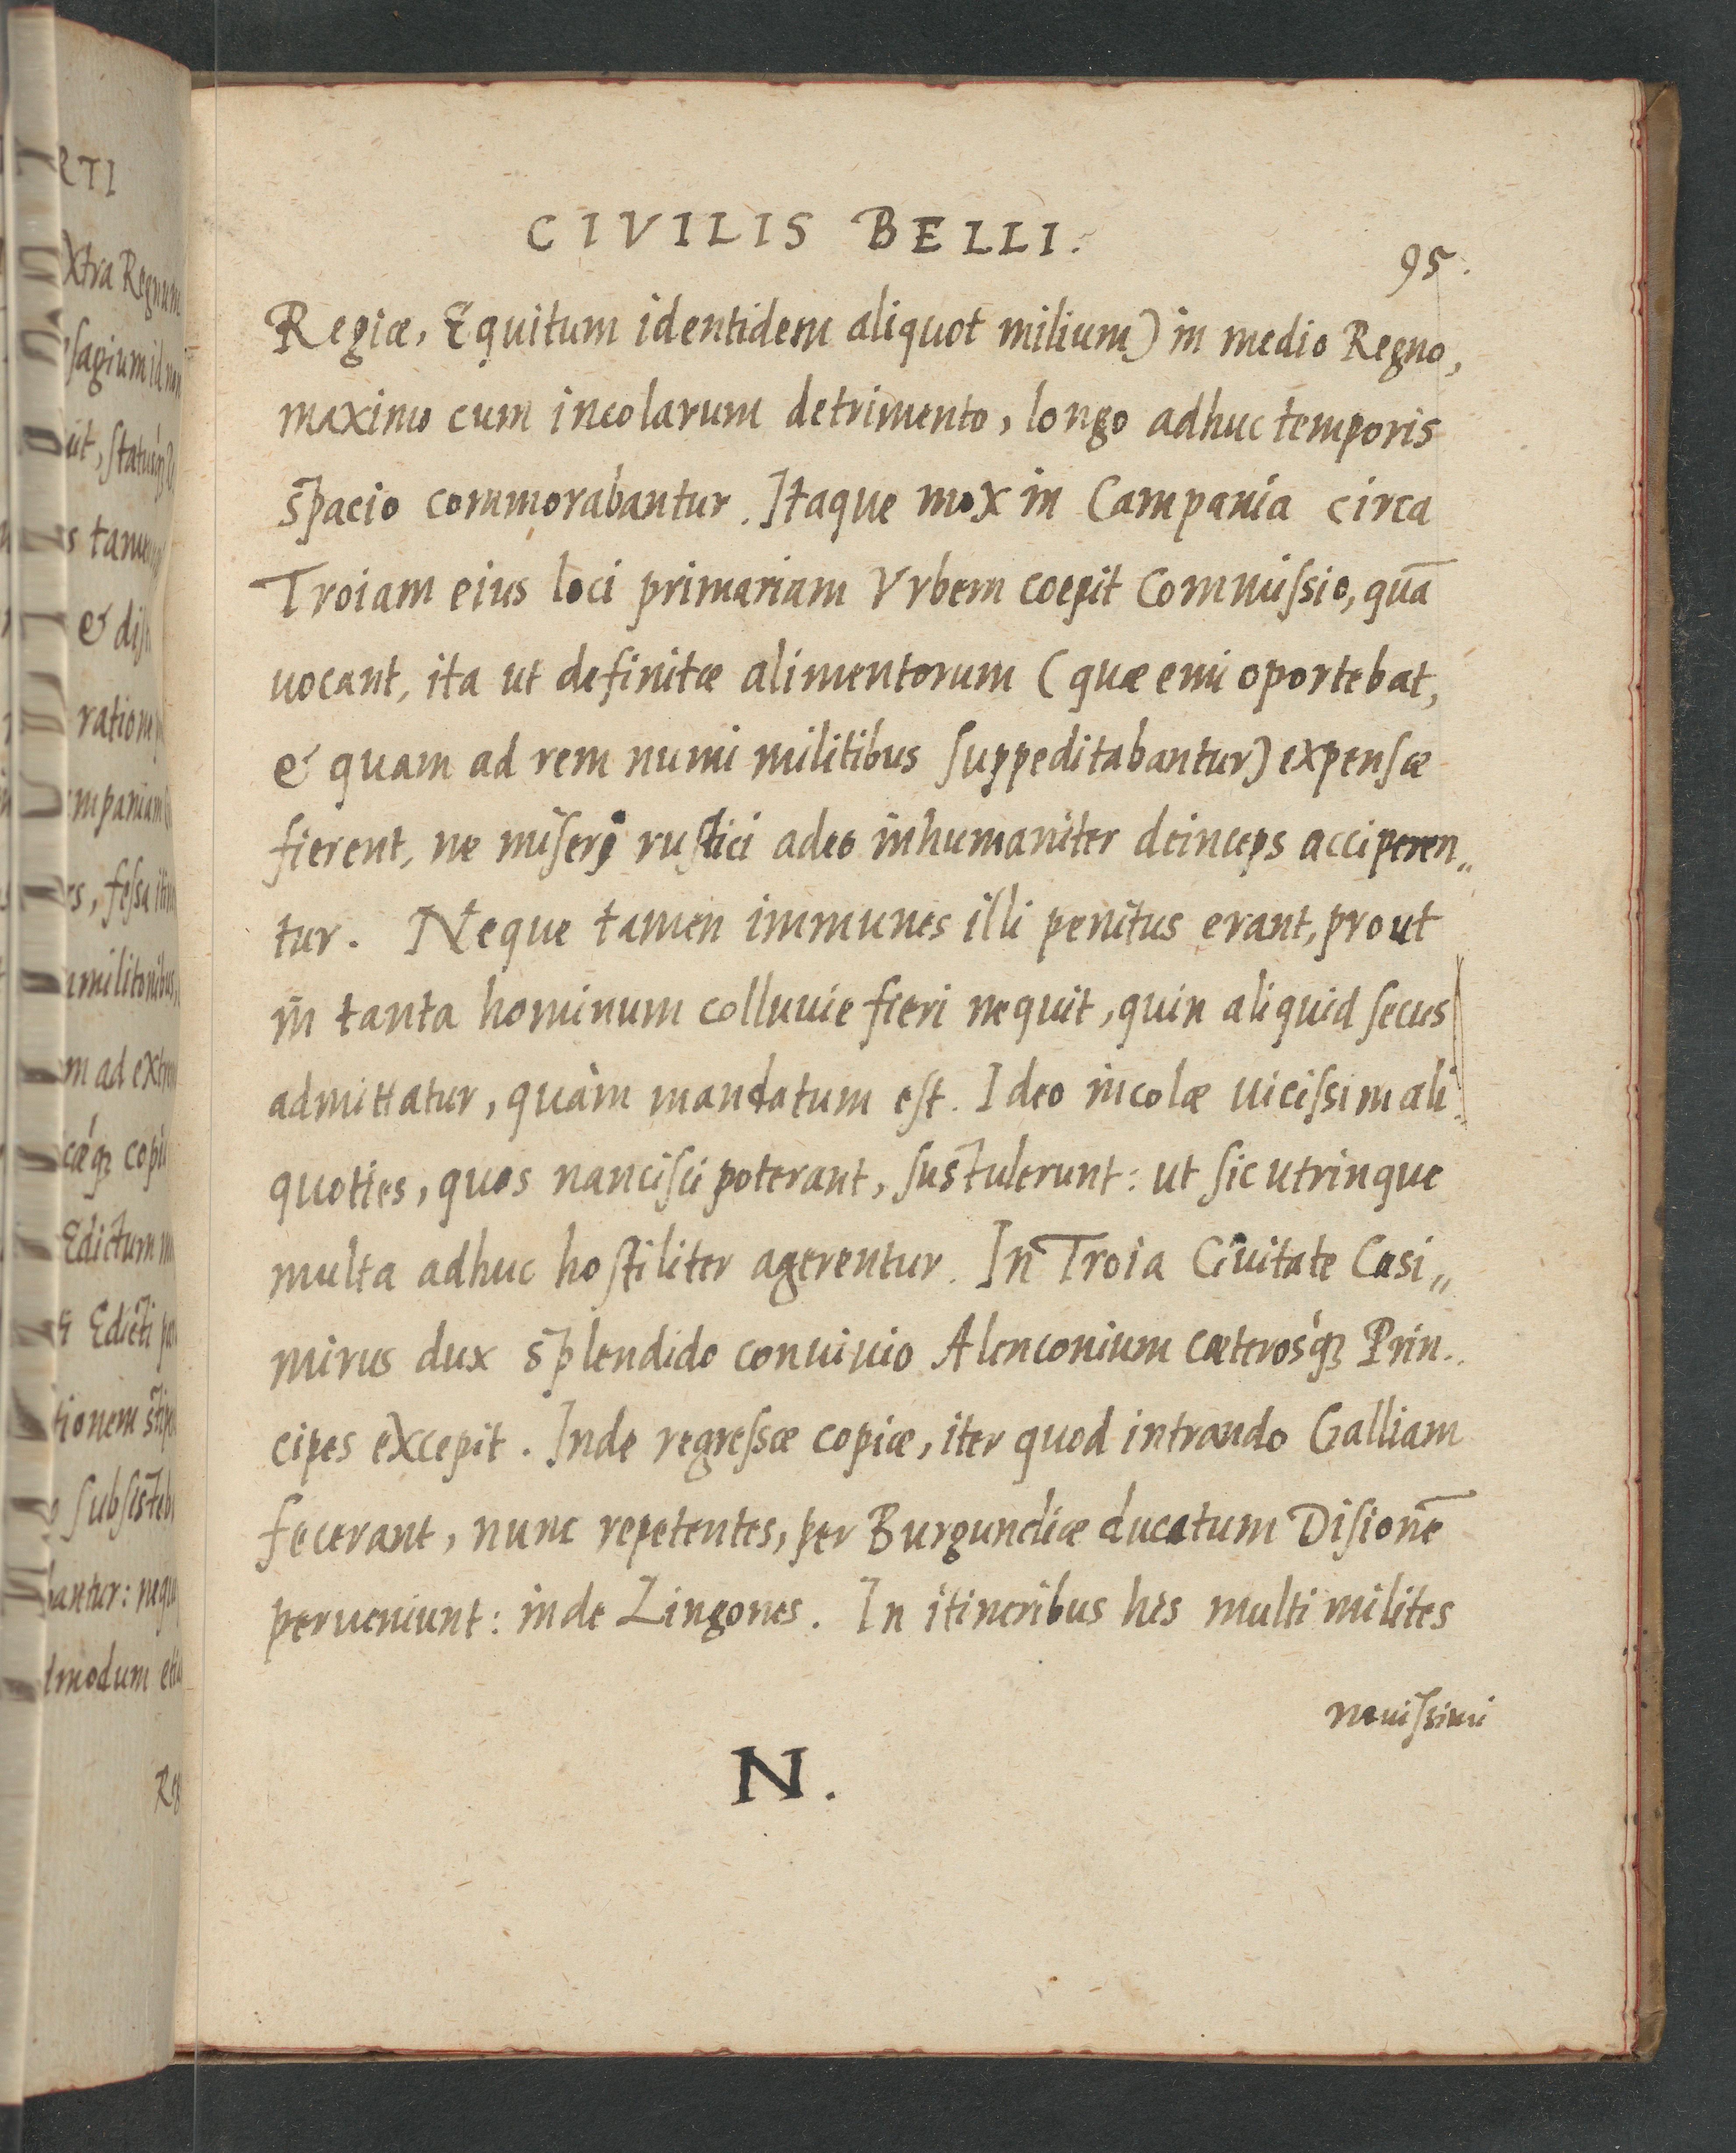 CIVILIS BELLI.
95.
Regiæ, Equitum identidem aliquot milium) in medio Regno,
maximo cum incolarum detrimento, longo adhuc temporis
spacio commorabantur. Itaque mox in Campania circa
Troiam eius loci primariam Vrbem coepit Commissio, quā
uocant, ita ut definitæ alimentorum (quæ emi oportebat,
& quam ad rem numi militibus suppeditabantur) expensæ
fierent, ne miseri rustici adeo inhumaniter deinceps acciperen„
tur. Neque tamen immunes illi penitus erant, prout
in tanta hominum colluuie fieri nequit, quin aliquid secus
admittatur, quàm mandatum est. Ideo incolæ uicissim ali„
quoties, quos nancisci poterant, sustulerunt: ut sic utrinque
multa adhuc hostiliter agerentur. In Troia Ciuitate Casi„
mirus dux splendido conuiuio Alenconium cæterosq́ꝫ Prin„
cipes excepit. Inde regressæ copiæ, iter quod intrando Galliam
fecerant, nunc repetentes, per Burgundiæ ducatum Disionē
perueniunt: inde Lingones. In itineribus his multi milites
nouissimi
N.
RTI
xtra Regnum
s tamen
& dis
ratione
mpaniam
m ad extre
Edictum
Edicti
tionem stip
subsisteb
bantur: nequ
tmodum eti
Reg